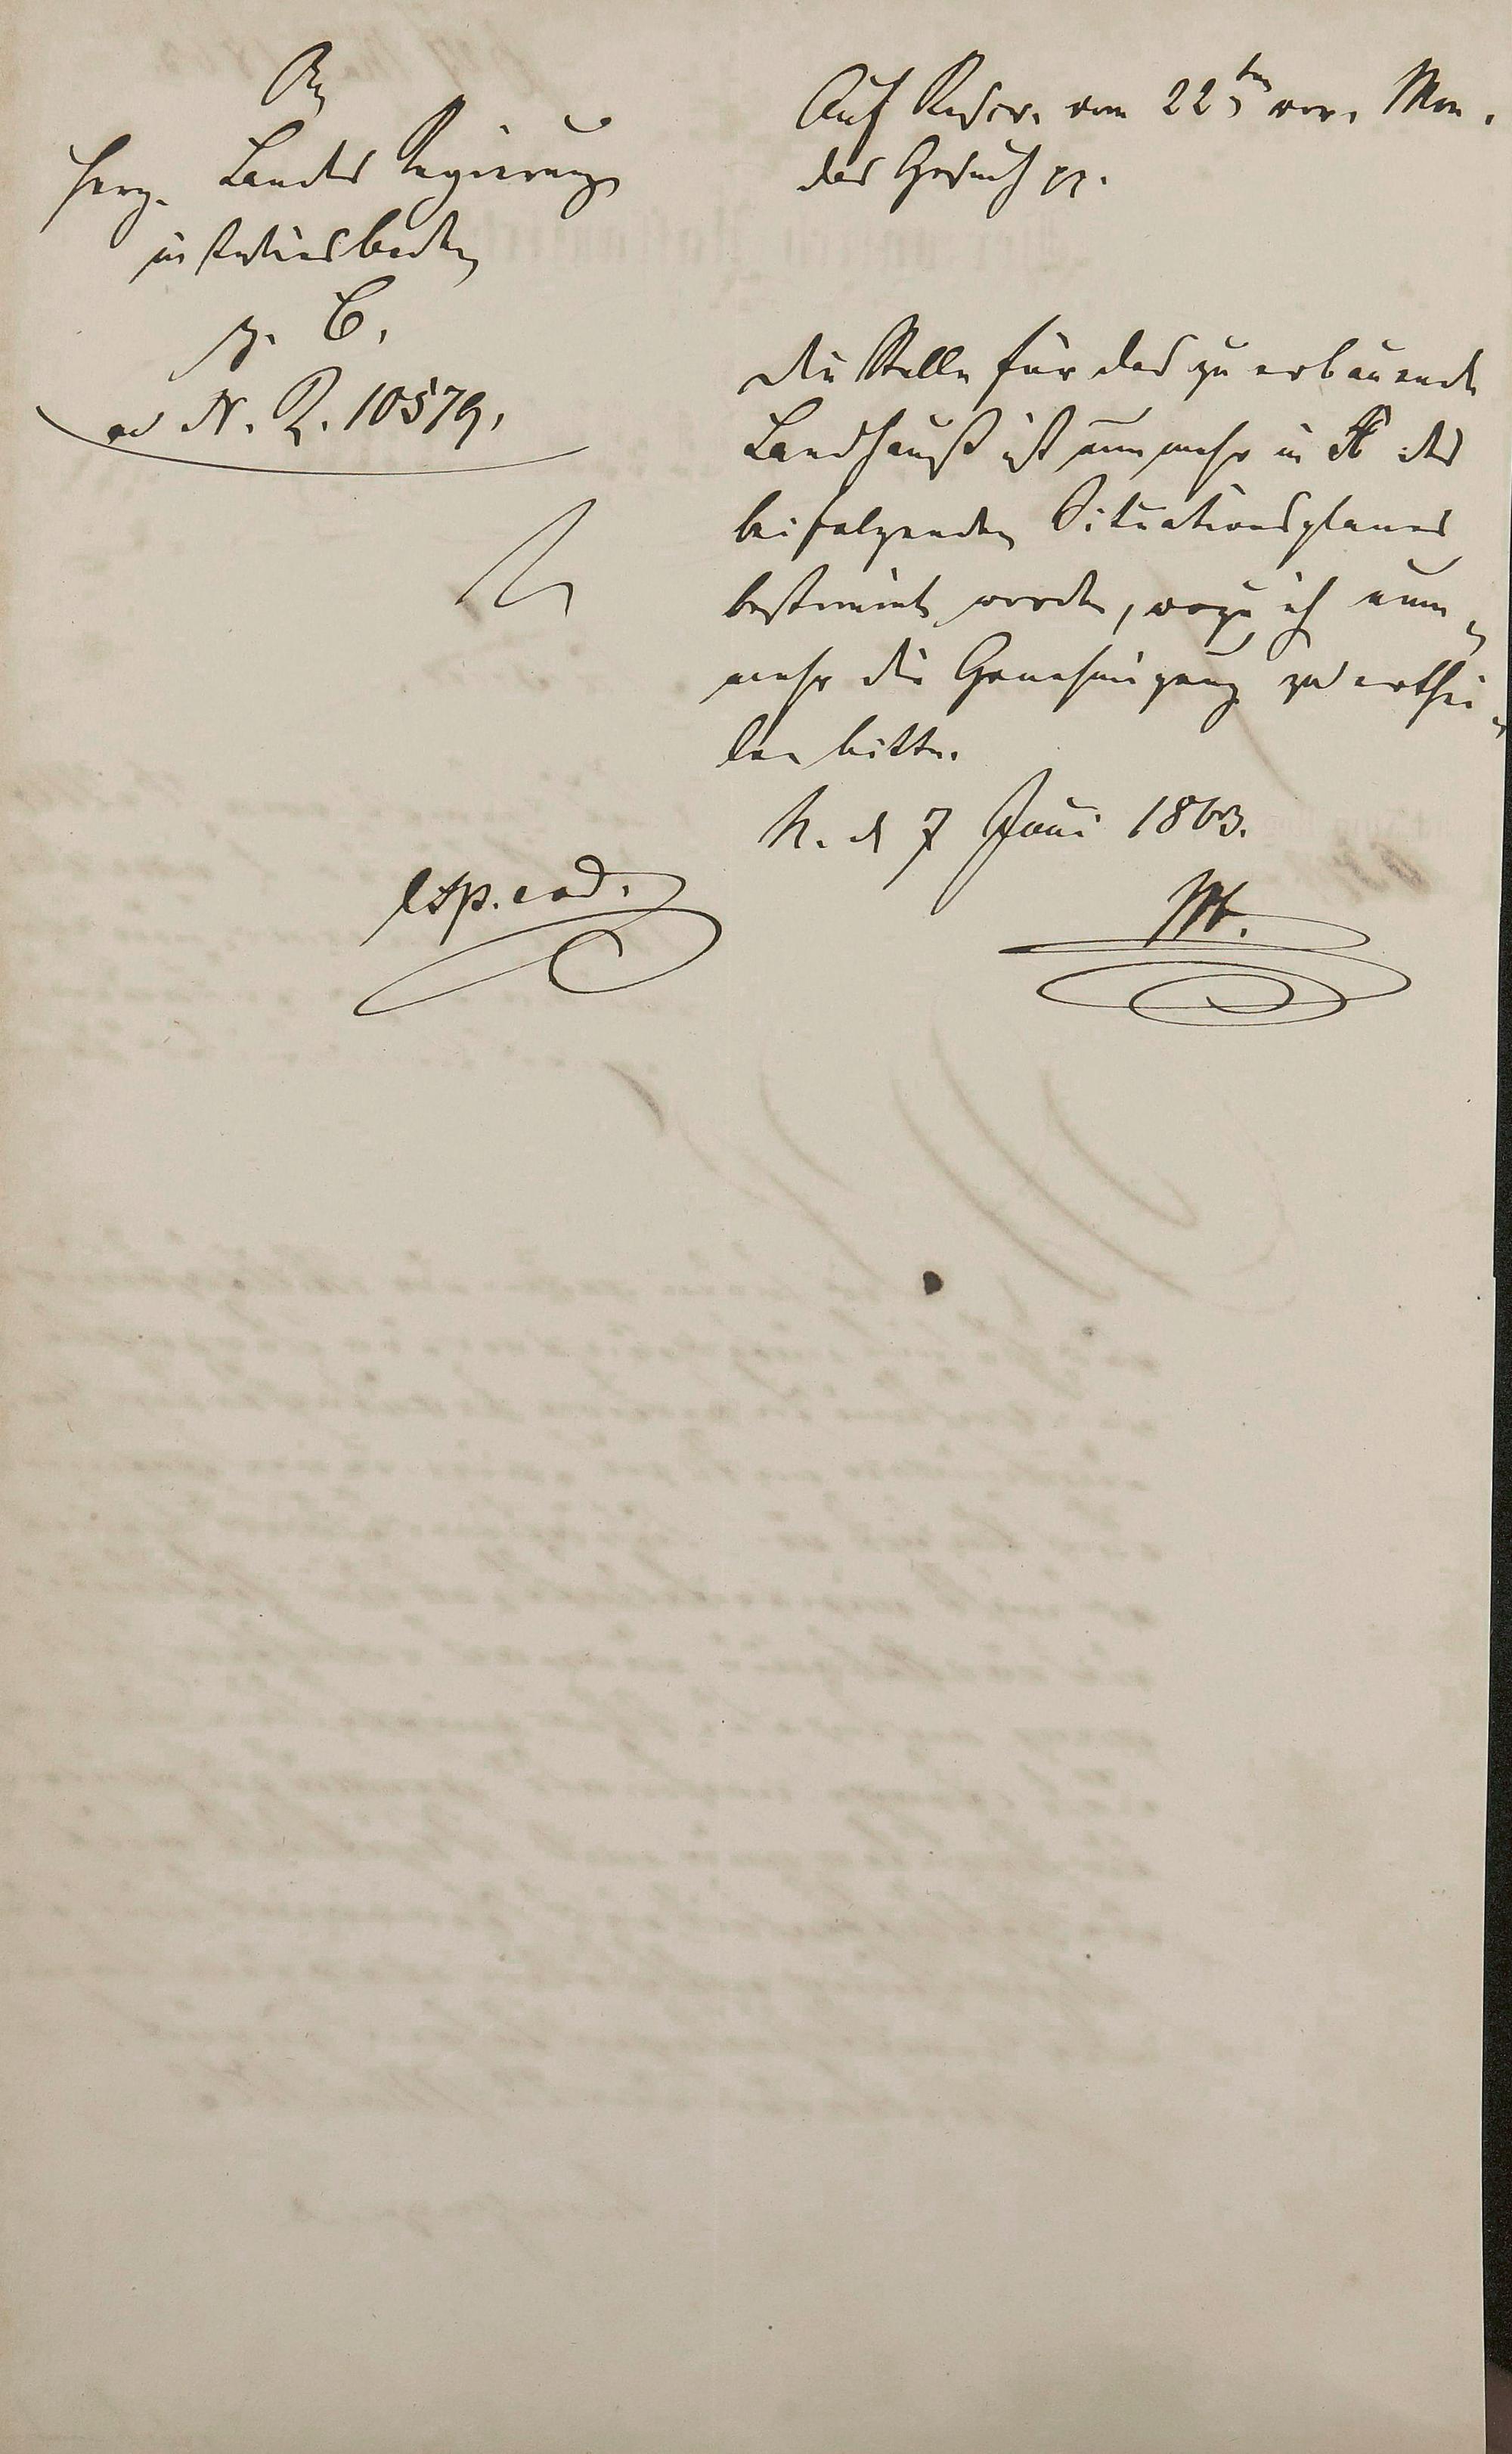 An
Herz. Landes Regierung
in Wiesbaden
z. B.
ad N. R. 10579.
Auf Rescr. vom 22ten vor. Mon.
das Gesuch pp.
Die Stelle für das zu erbauende
Landhauß ist nunmehr in A des
beifolgenden Situationsplanes
bestimmt worden, wozu ich nun-
mehr die Genehmigung zu erthei-
len bitte.
H. d 7 Juni 1863.
exp. eod.